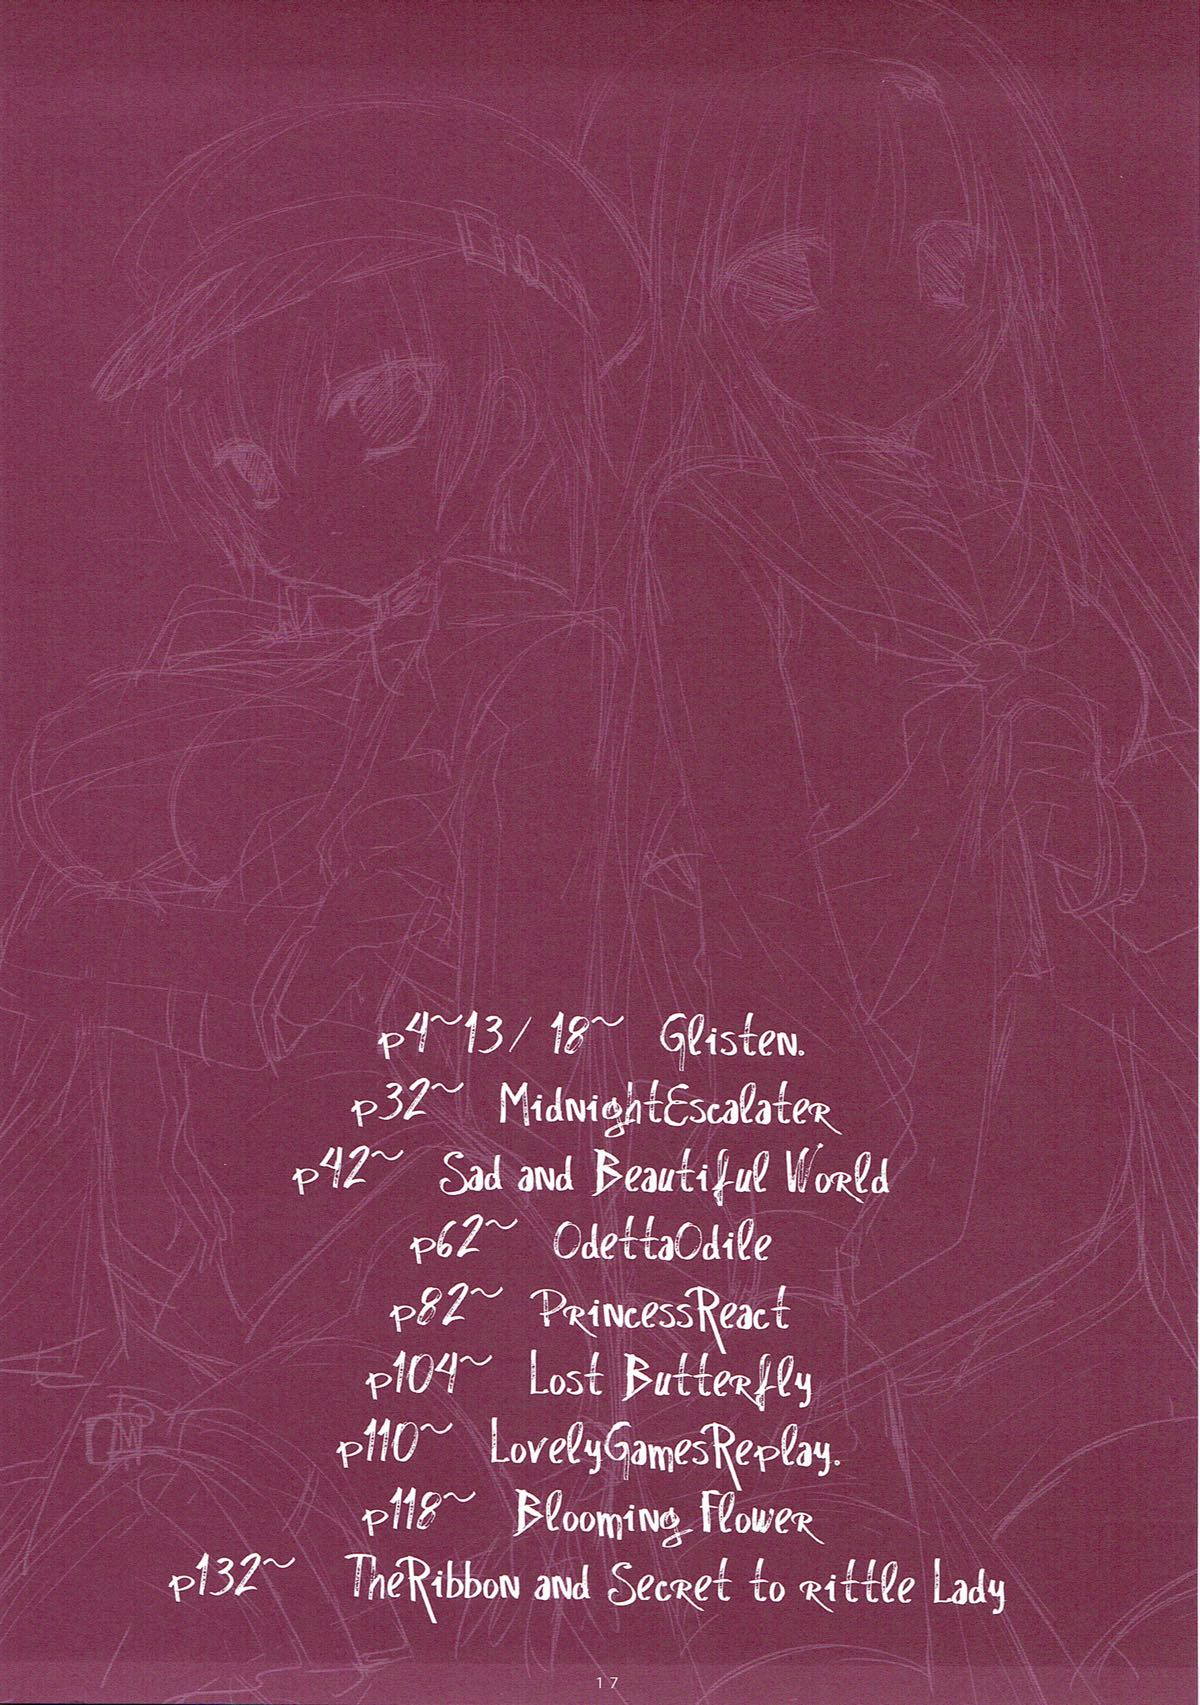 p4~13/18~ Glisten.
p32~ MidnightEscalater
p42~ Sad and Beautiful World
p62~ OdettaOdile
p82~ PrincessReact
p104~ Lost Butterfly
p110~ LovelyGamesReplay.
p118~ Blooming Flower
p132~ TheRibbon and Secret to rittle Lady
17